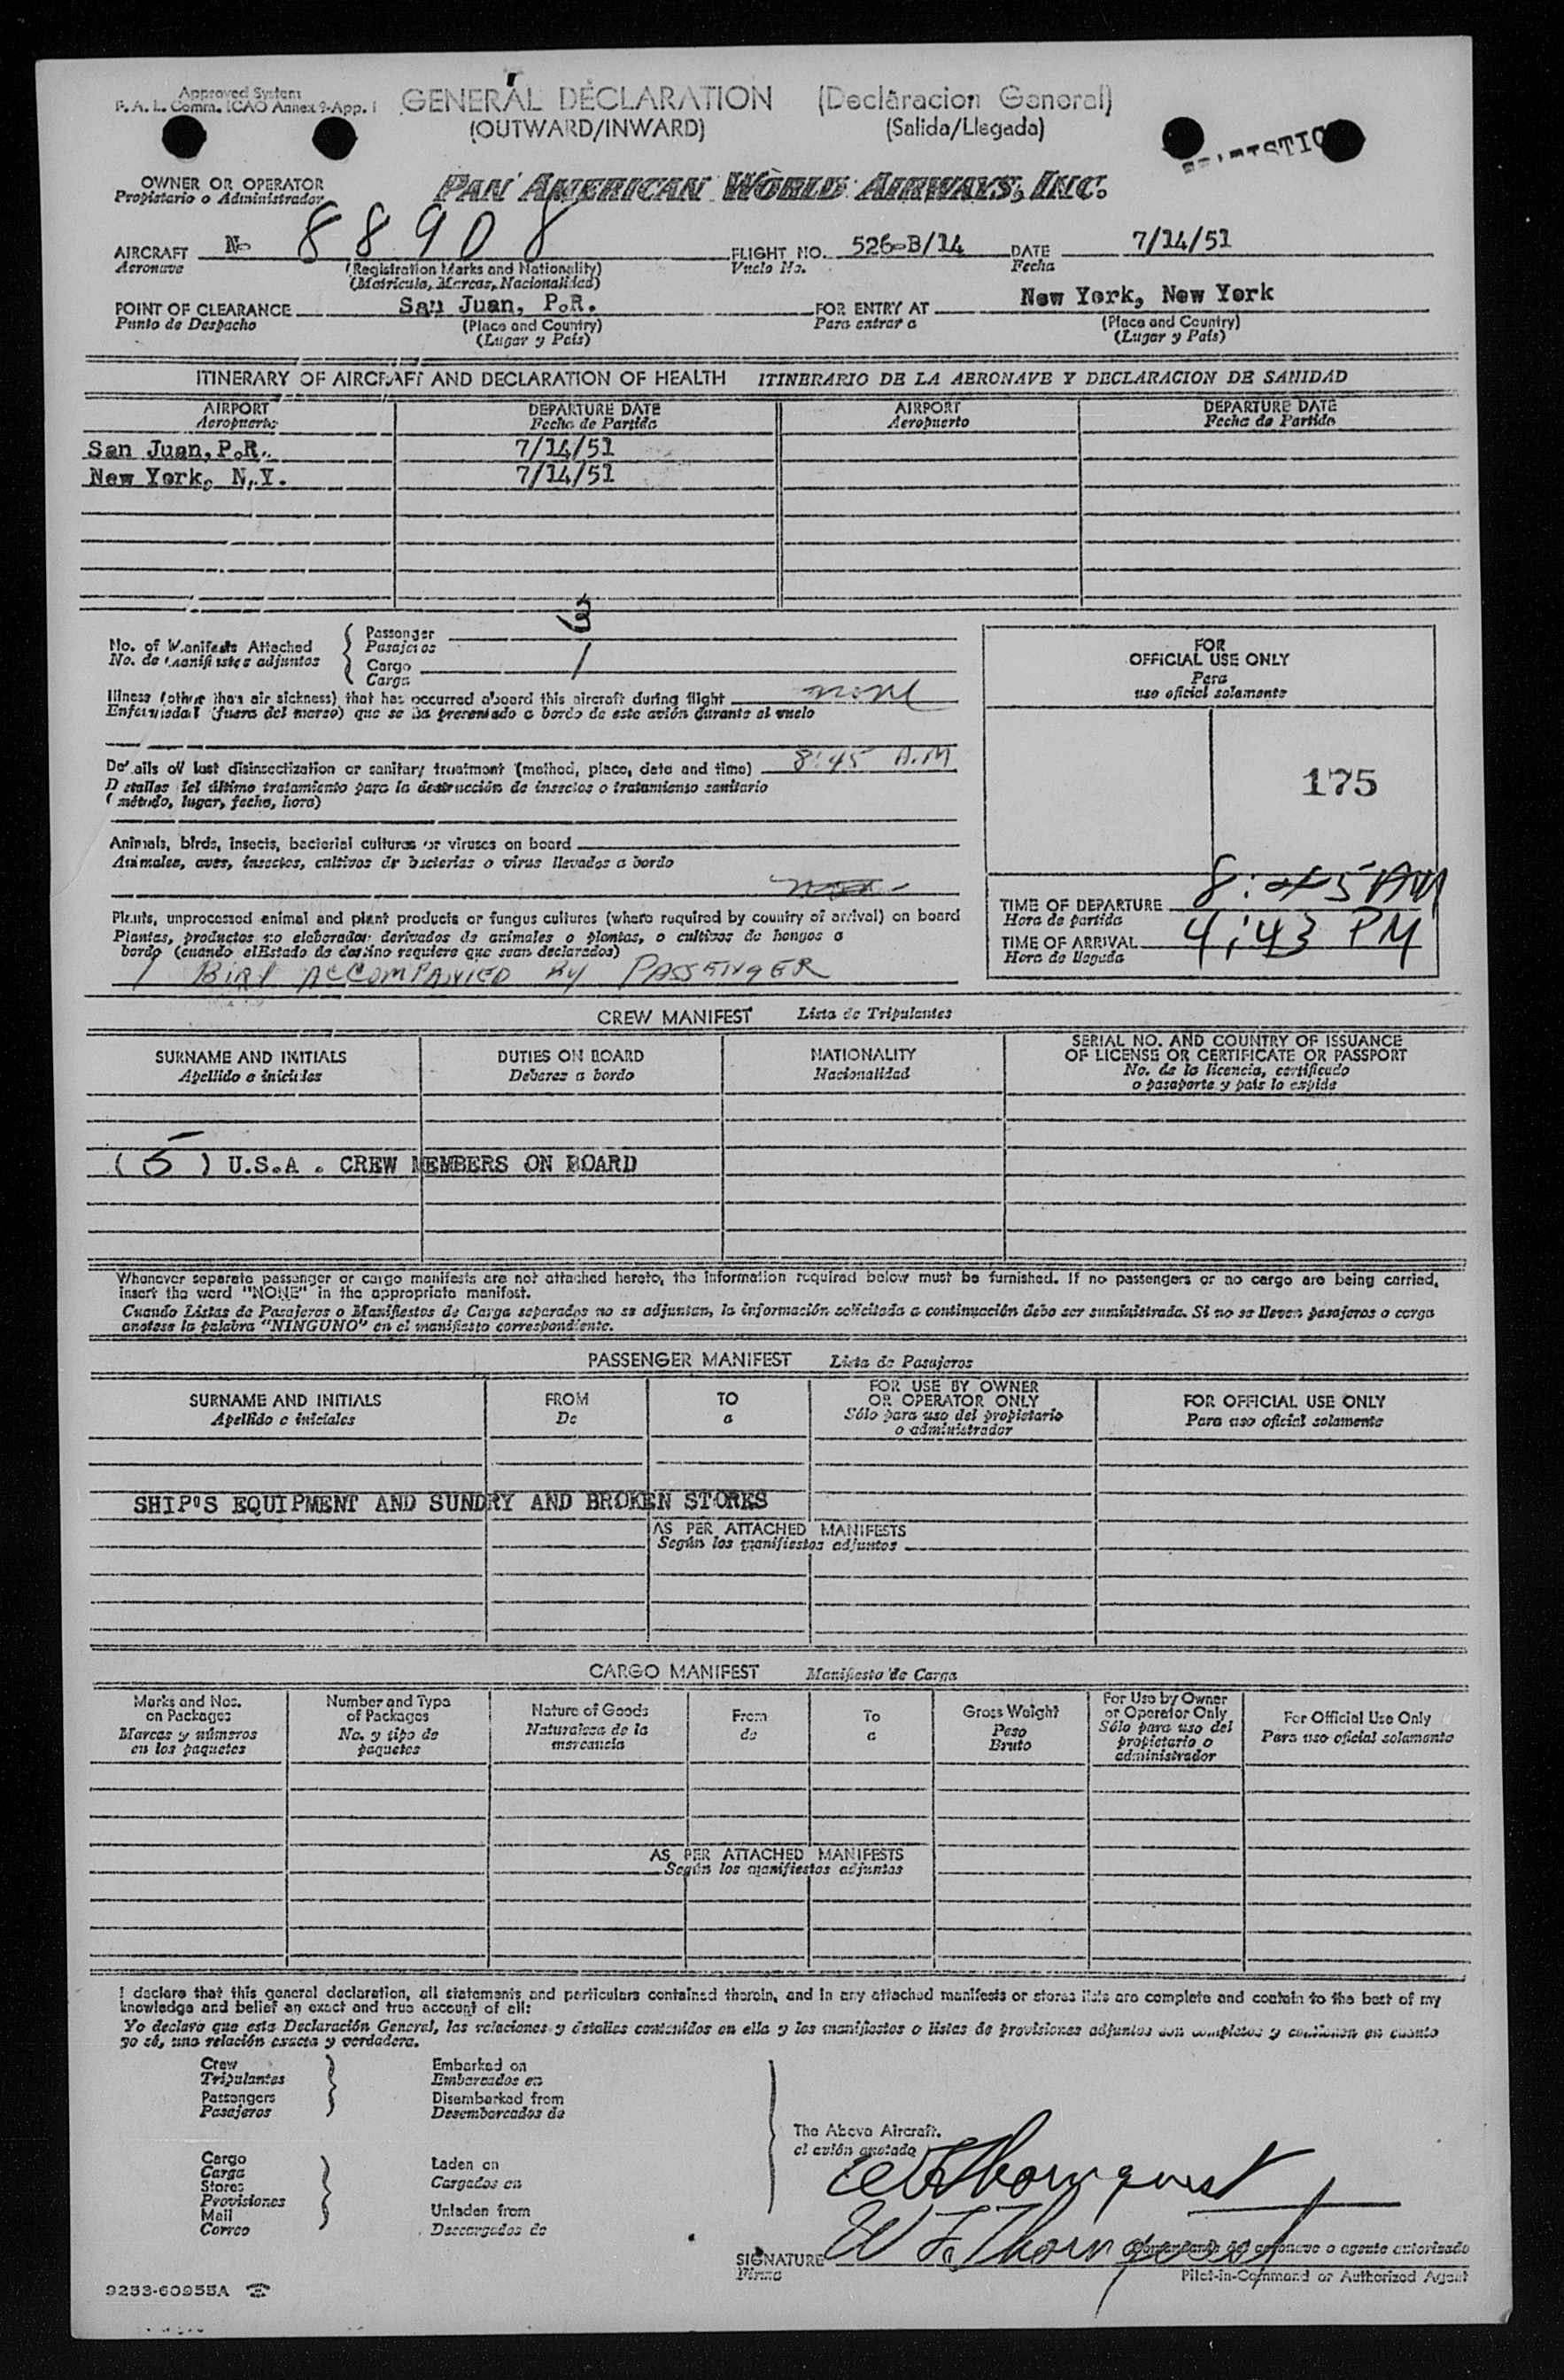 Approved System
F. A. L. Comm. ICAO Annex 9-App. 1
GENERAL DECLARATION (Declaracion General)
(OUTWARD/INWARD) (Salida/Llegada)
OWNER OR OPERATOR
Propietario o Administrador
PAN AMERICAN WORLD AIRWAYS, INC.
AIRCRAFT N- 88908 FLIGHT NO. 526-B/14 DATE 7/14/51
Aeronave (Registration Marks and Nationality) Vuelo No. Fecha
(Matricula, Marcas, Nacionalidad)
POINT OF CLEARANCE San Juan, P.R. FOR ENTRY AT New York, New York
Punto de Despacho (Place and Country) Para entrar a (Place and Country)
(Lugar y País) (Lugar y País)
ITINERARY OF AIRCRAFT AND DECLARATION OF HEALTH ITINERARIO DE LA AERONAVE Y DECLARACION DE SANIDAD
AIRPORT DEPARTURE DATE AIRPORT DEPARTURE DATE
Aeropuerto Fecha de Partida Aeropuerto Fecha de Partida
San Juan, P.R. 7/14/51
New York, N.Y. 7/14/51
No. of Manifests Attached
No. de manifiestos adjuntos
Passenger 3
Pasajeros
Cargo 1
Carga
Illness (other than air sickness) that has occurred aboard this aircraft during flight none
Enfermedad (fuera del mareo) que se ha presentado a bordo de este avión durante el vuelo
Details of last disinsectization or sanitary treatment (method, place, date and time) 8:45 A.M
Detalles del último tratamiento para la destrucción de insectos o tratamiento sanitario
(método, lugar, fecha, hora)
Animals, birds, insects, bacterial cultures or viruses on board
Animales, aves, insectos, cultivos de bacterias o virus llevados a bordo
Plants, unprocessed animal and plant products or fungus cultures (where required by country of arrival) on board
Plantas, productos no elaborados derivados de animales o plantas, o cultivos de hongos a
bordo (cuando el Estado de destino requiere que sean declarados)
1 BIRD ACCOMPANIED By PASSENGER
FOR
OFFICIAL USE ONLY
Para
uso oficial solamente
175
TIME OF DEPARTURE 8:45 AM
Hora de partida
TIME OF ARRIVAL 4:43 PM
Hora de llegada
CREW MANIFEST Lista de Tripulantes
SURNAME AND INITIALS DUTIES ON BOARD NATIONALITY SERIAL NO. AND COUNTRY OF ISSUANCE
OF LICENSE OR CERTIFICATE OR PASSPORT
Apellido e iniciales Deberes a bordo Nacionalidad No. de la licencia, certificado
o pasaporte y país lo expide
( 5 ) U.S.A . CREW MEMBERS ON BOARD
Whenever separate passenger or cargo manifests are not attached hereto, the information required below must be furnished. If no passengers or no cargo are being carried,
insert the word "NONE" in the appropriate manifest.
Cuando Listas de Pasajeros o Manifiestos de Carga separados no se adjuntan, la información solicitada a continuación debe ser suministrada. Si no se llevan pasajeros o carga
anotese la palabra "NINGUNO" en el manifiesto correspondiente.
PASSENGER MANIFEST Lista de Pasajeros
SURNAME AND INITIALS FROM TO FOR USE BY OWNER FOR OFFICIAL USE ONLY
OR OPERATOR ONLY
Apellido e iniciales De a Sólo para uso del propietario Para uso oficial solamente
o administrador
SHIP'S EQUIPMENT AND SUNDRY AND BROKEN STORES
AS PER ATTACHED MANIFESTS
Según los manifiestos adjuntos
CARGO MANIFEST Manifiesto de Carga
Marks and Nos. on Packages Number and Type of Packages Nature of Goods From To Gross Weight For Use by Owner or Operator Only For Official Use Only
Marcas y números en los paquetes No. y tipo de paquetes Naturaleza de la mercancia de a Peso Bruto Sólo para uso del propietario o administrador Para uso oficial solamente
AS PER ATTACHED MANIFESTS
Según los manifiestos adjuntos
I declare that this general declaration, all statements and particulars contained therein, and in any attached manifests or stores lists are complete and contain to the best of my
knowledge and belief an exact and true account of all:
Yo declaro que esta Declaración General, las relaciones y detalles contenidos en ella y los manifiestos o listas de provisiones adjuntos son completos y contienen en cuanto
yo sé, una relación exacta y verdadera.
Crew Embarked on
Tripulantes Embarcados en
Passengers Disembarked from
Pasajeros Desembarcados de
The Above Aircraft.
el avión anotado
Cargo Laden on
Carga Cargados en
Stores
Provisiones
Mail Unladen from
Correo Descargados de
W F Thornquist
SIGNATURE W F. Thornquist
Firma
Comandante de aeronave o agente autorizado
Pilot-in-Command or Authorized Agent
9253-60955A